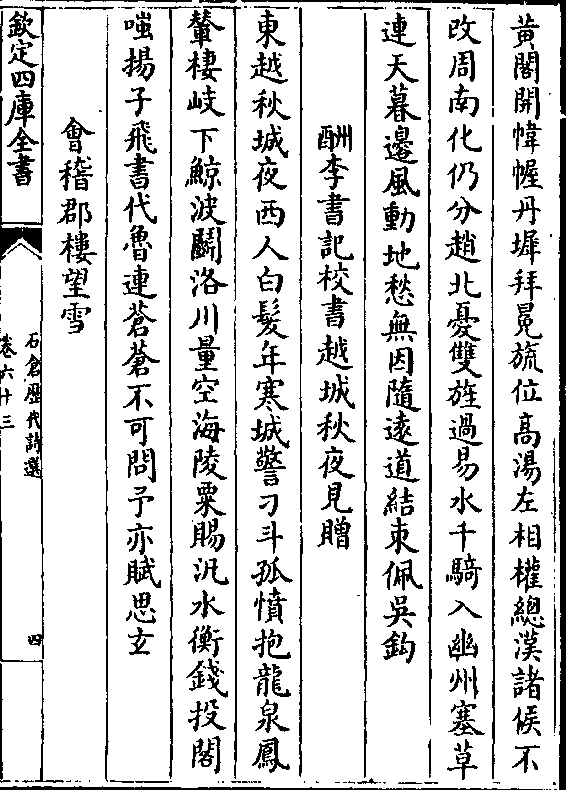 黄閣開帷幄丹墀拜冕旒位高湯左相權總漢諸侯不
改周南化仍分趙北憂雙旌過易水千騎入幽州塞草
連天暮邊風動地愁無因隨逺道結束佩吳鈎
酬李書記校書越城秋夜見贈
東越秋城夜西人白髮年寒城警刁斗孤憤抱龍泉鳳
輦棲岐下鯨波鬭洛川量空海陵粟賜汎水衡錢投閣
嗤揚子飛書代魯連蒼蒼不可問予亦賦思玄
會稽郡樓望雪
欽定四庫全書
石倉歷代詩選
卷六十三
四